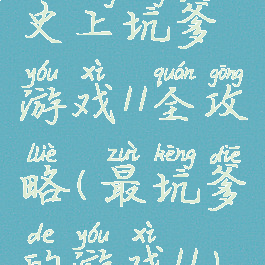 史上坑爹
yóu xì quán gōng
游戏11全攻
lüè zuì kēng diē
略(最坑爹
de yóu xì
的游戏11)